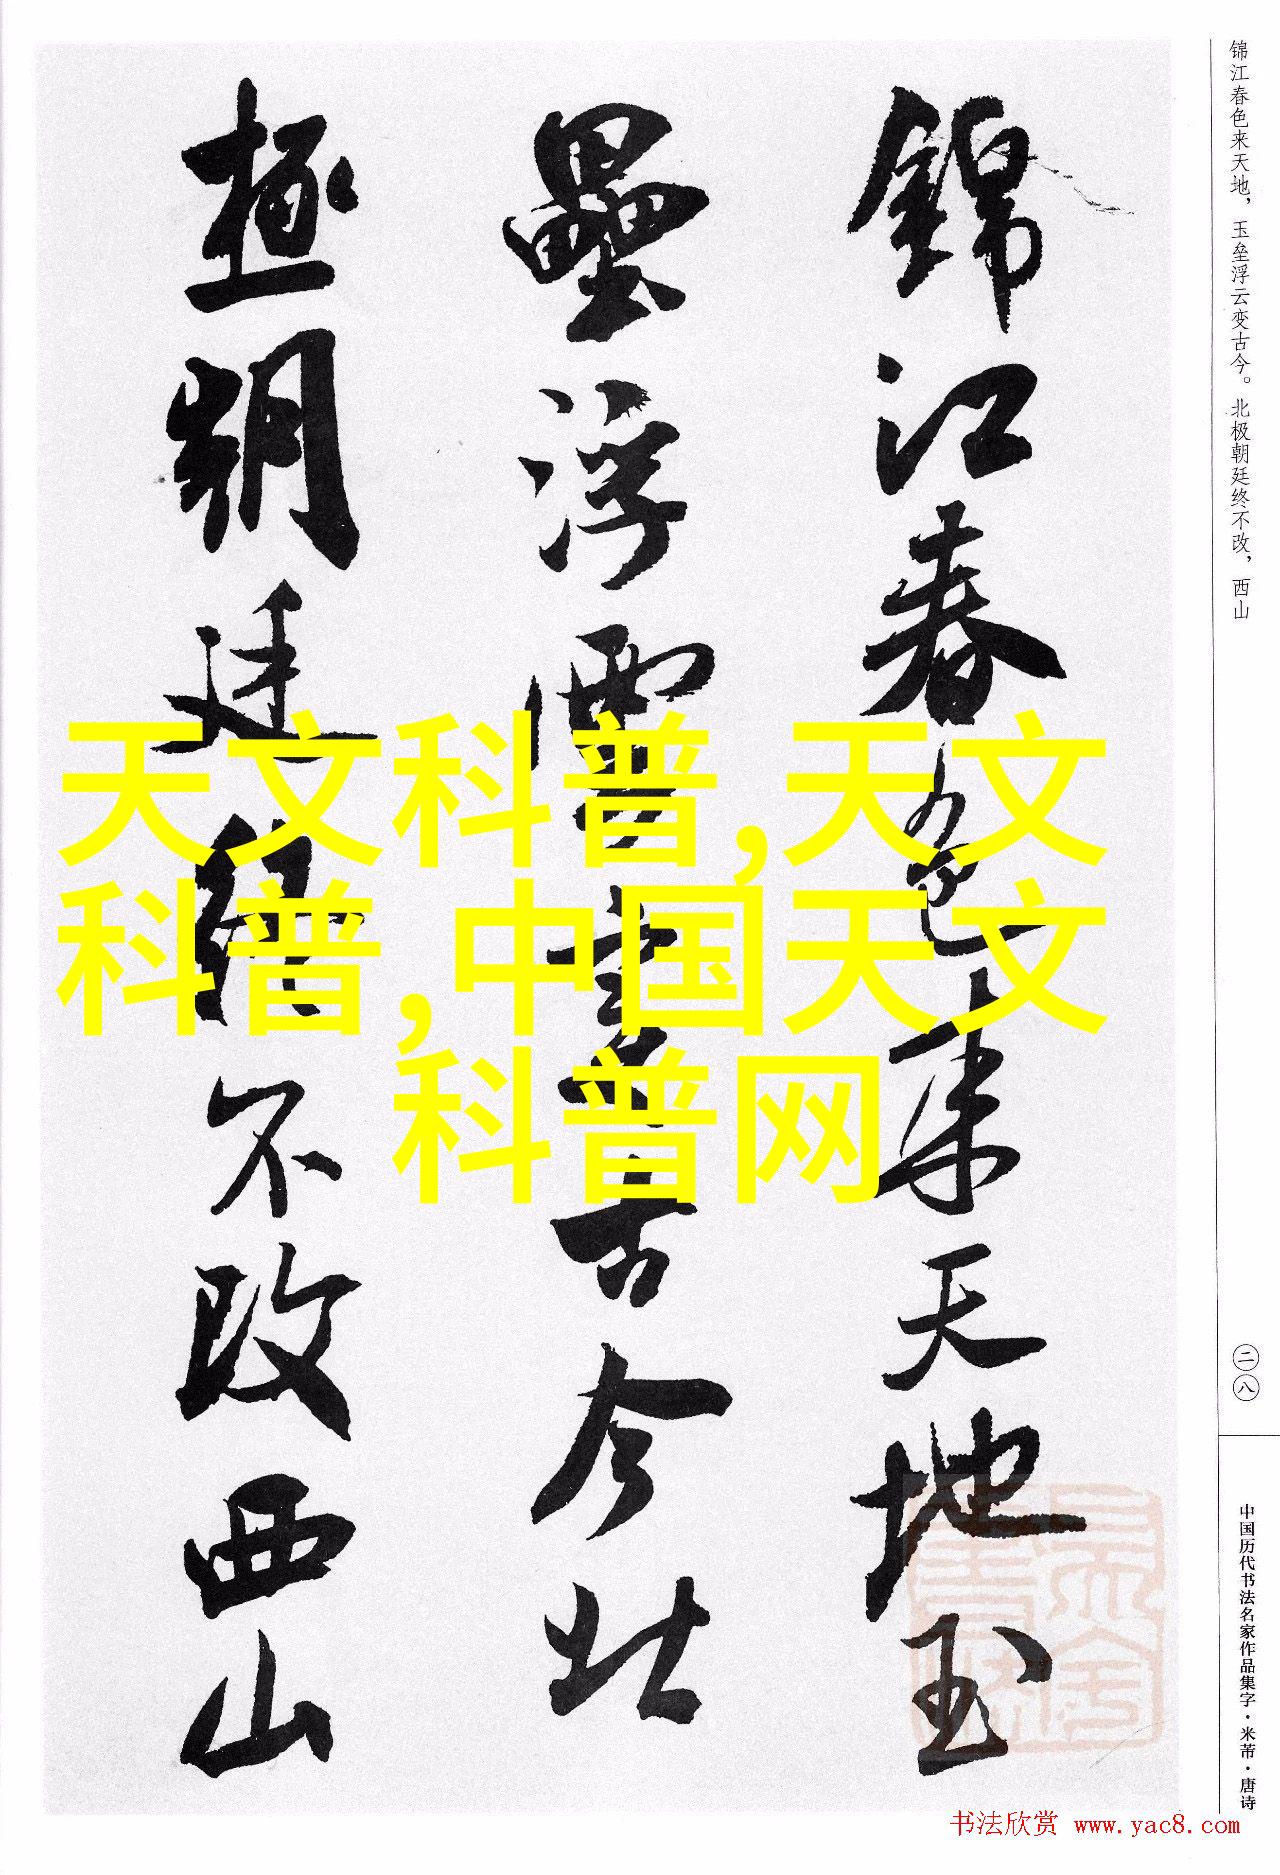 锦江春色来天地，玉垒浮云变古今。北极朝廷终不改，西山
錦江春色来天地玉
壘浮雲變古今北
極朝廷終不改西山
天文科普,天文
科普,中国天文
科普网
二八
中国历代书法名家作品集字·米芾·唐诗
书法欣赏 www.yac8.com